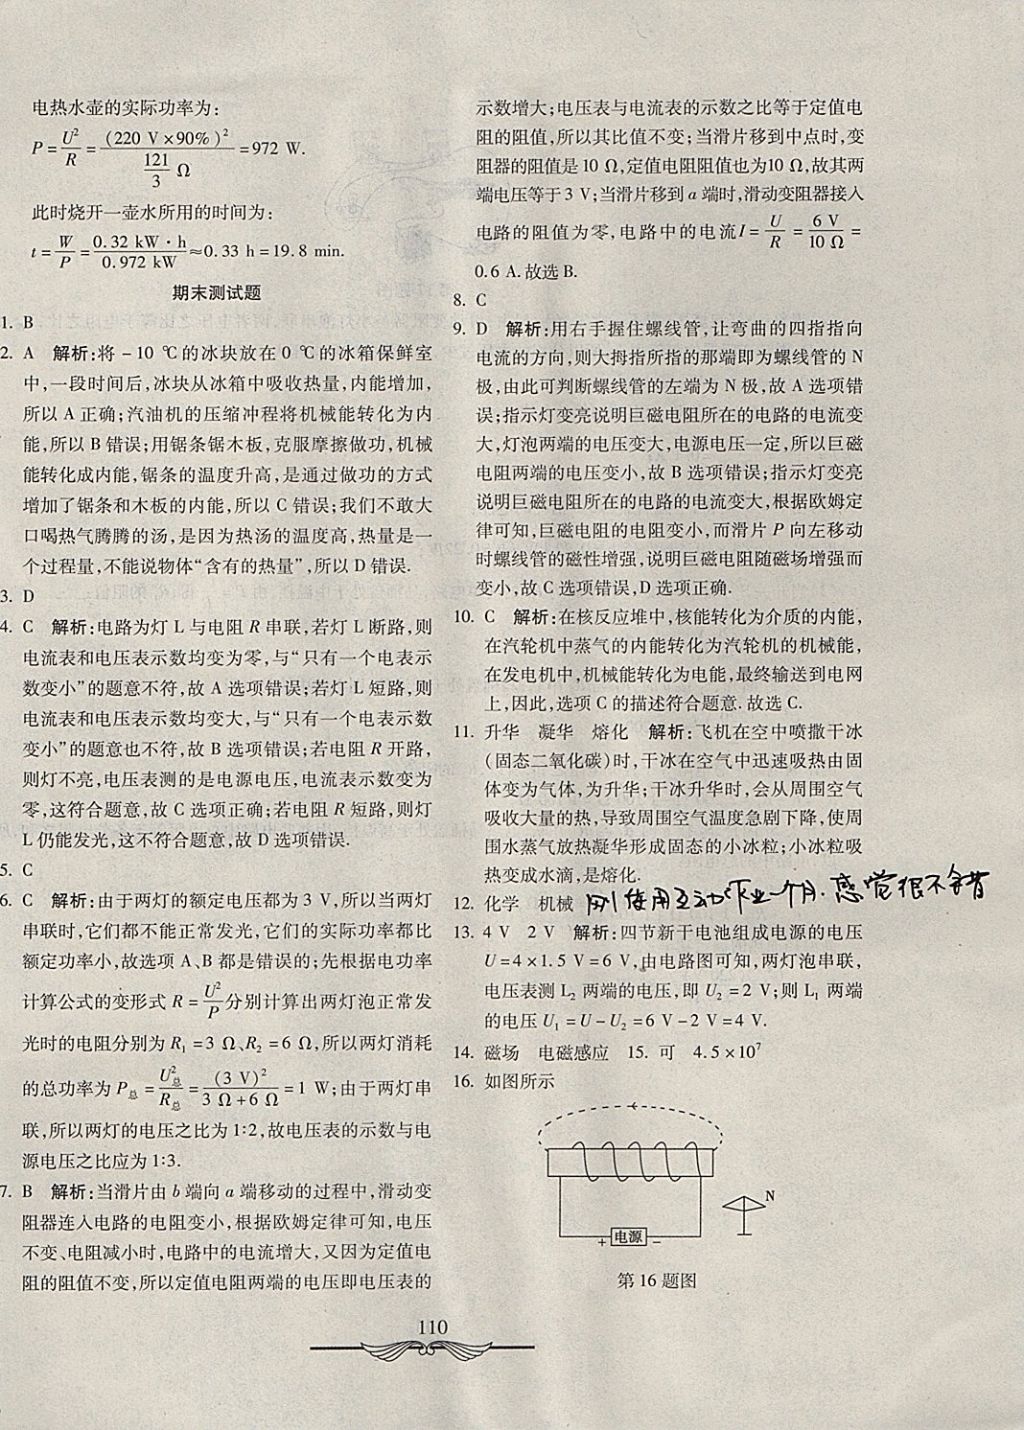 电热水壶的实际功率为:
P=U²/R=(220 V×90%)²/(121/3 Ω)=972 W.
此时烧开一壶水所用的时间为:
t=W/P=0.32 kW·h/0.972 kW≈0.33 h=19.8 min.
期末测试题
1. B
2. A 解析:将-10 ℃的冰块放在0 ℃的冰箱保鲜室
中,一段时间后,冰块从冰箱中吸收热量,内能增加,
所以 A 正确;汽油机的压缩冲程将机械能转化为内
能,所以 B 错误;用锯条锯木板,克服摩擦做功,机械
能转化成内能,锯条的温度升高,是通过做功的方式
增加了锯条和木板的内能,所以 C 错误;我们不敢大
口喝热气腾腾的汤,是因为热汤的温度高,热量是一
个过程量,不能说物体“含有的热量”,所以 D 错误.
3. D
4. C 解析:电路为灯 L 与电阻 R 串联,若灯 L 断路,则
电流表和电压表示数均变为零,与“只有一个电表示
数变小”的题意不符,故 A 选项错误;若灯 L 短路,则
电流表和电压表示数均变大,与“只有一个电表示数
变小”的题意也不符,故 B 选项错误;若电阻 R 开路,
则灯不亮,电压表测的是电源电压,电流表示数变为
零,这符合题意,故 C 选项正确;若电阻 R 短路,则灯
L 仍能发光,这不符合题意,故 D 选项错误.
5. C
6. C 解析:由于两灯的额定电压都为 3 V,所以当两灯
串联时,它们都不能正常发光,它们的实际功率都比
额定功率小,故选项 A、B 都是错误的;先根据电功率
计算公式的变形式 R=U²/P分别计算出两灯泡正常发
光时的电阻分别为 R₁=3 Ω、R₂=6 Ω,所以两灯消耗
的总功率为 P总=U²总/R总=(3 V)²/(3 Ω+6 Ω)=1 W;由于两灯串
联,所以两灯的电压之比为 1:2,故电压表的示数与电
源电压之比应为 1:3.
7. B 解析:当滑片由 b 端向 a 端移动的过程中,滑动变
阻器连入电路的电阻变小,根据欧姆定律可知,电压
不变、电阻减小时,电路中的电流增大,又因为定值电
阻的阻值不变,所以定值电阻两端的电压即电压表的
示数增大;电压表与电流表的示数之比等于定值电
阻的阻值,所以其比值不变;当滑片移到中点时,变
阻器的阻值是 10 Ω,定值电阻阻值也为10 Ω,故其两
端电压等于 3 V;当滑片移到 a 端时,滑动变阻器接入
电路的阻值为零,电路中的电流 I=U/R=6 V/10 Ω=
0.6 A.故选 B.
8. C
9. D 解析:用右手握住螺线管,让弯曲的四指指向
电流的方向,则大拇指所指的那端即为螺线管的 N
极,由此可判断螺线管的左端为 N 极,故 A 选项错
误;指示灯变亮说明巨磁电阻所在的电路的电流变
大,灯泡两端的电压变大,电源电压一定,所以巨磁
电阻两端的电压变小,故 B 选项错误;指示灯变亮
说明巨磁电阻所在的电路的电流变大,根据欧姆定
律可知,巨磁电阻的电阻变小,而滑片 P 向左移动
时螺线管的磁性增强,说明巨磁电阻随磁场增强而
变小,故 C 选项错误,D 选项正确.
10. C 解析:在核反应堆中,核能转化为介质的内能,
在汽轮机中蒸气的内能转化为汽轮机的机械能,
在发电机中,机械能转化为电能,最终输送到电网
上,因此,选项 C 的描述符合题意.故选 C.
11. 升华 凝华 熔化 解析:飞机在空中喷撒干冰
(固态二氧化碳)时,干冰在空气中迅速吸热由固
体变为气体,为升华;干冰升华时,会从周围空气
吸收大量的热,导致周围空气温度急剧下降,使周
围水蒸气放热凝华形成固态的小冰粒;小冰粒吸
热变成水滴,是熔化.
12. 化学 机械 刚使用互动作业一个月.感觉很不错
13. 4 V 2 V 解析:四节新干电池组成电源的电压
U=4×1.5 V=6 V,由电路图可知,两灯泡串联,
电压表测 L₂ 两端的电压,即 U₂=2 V;则 L₁ 两端
的电压 U₁=U-U₂=6 V-2 V=4 V.
14. 磁场 电磁感应 15. 可 4.5×10⁷
16. 如图所示
N
+ 电源 -
第 16 题图
110